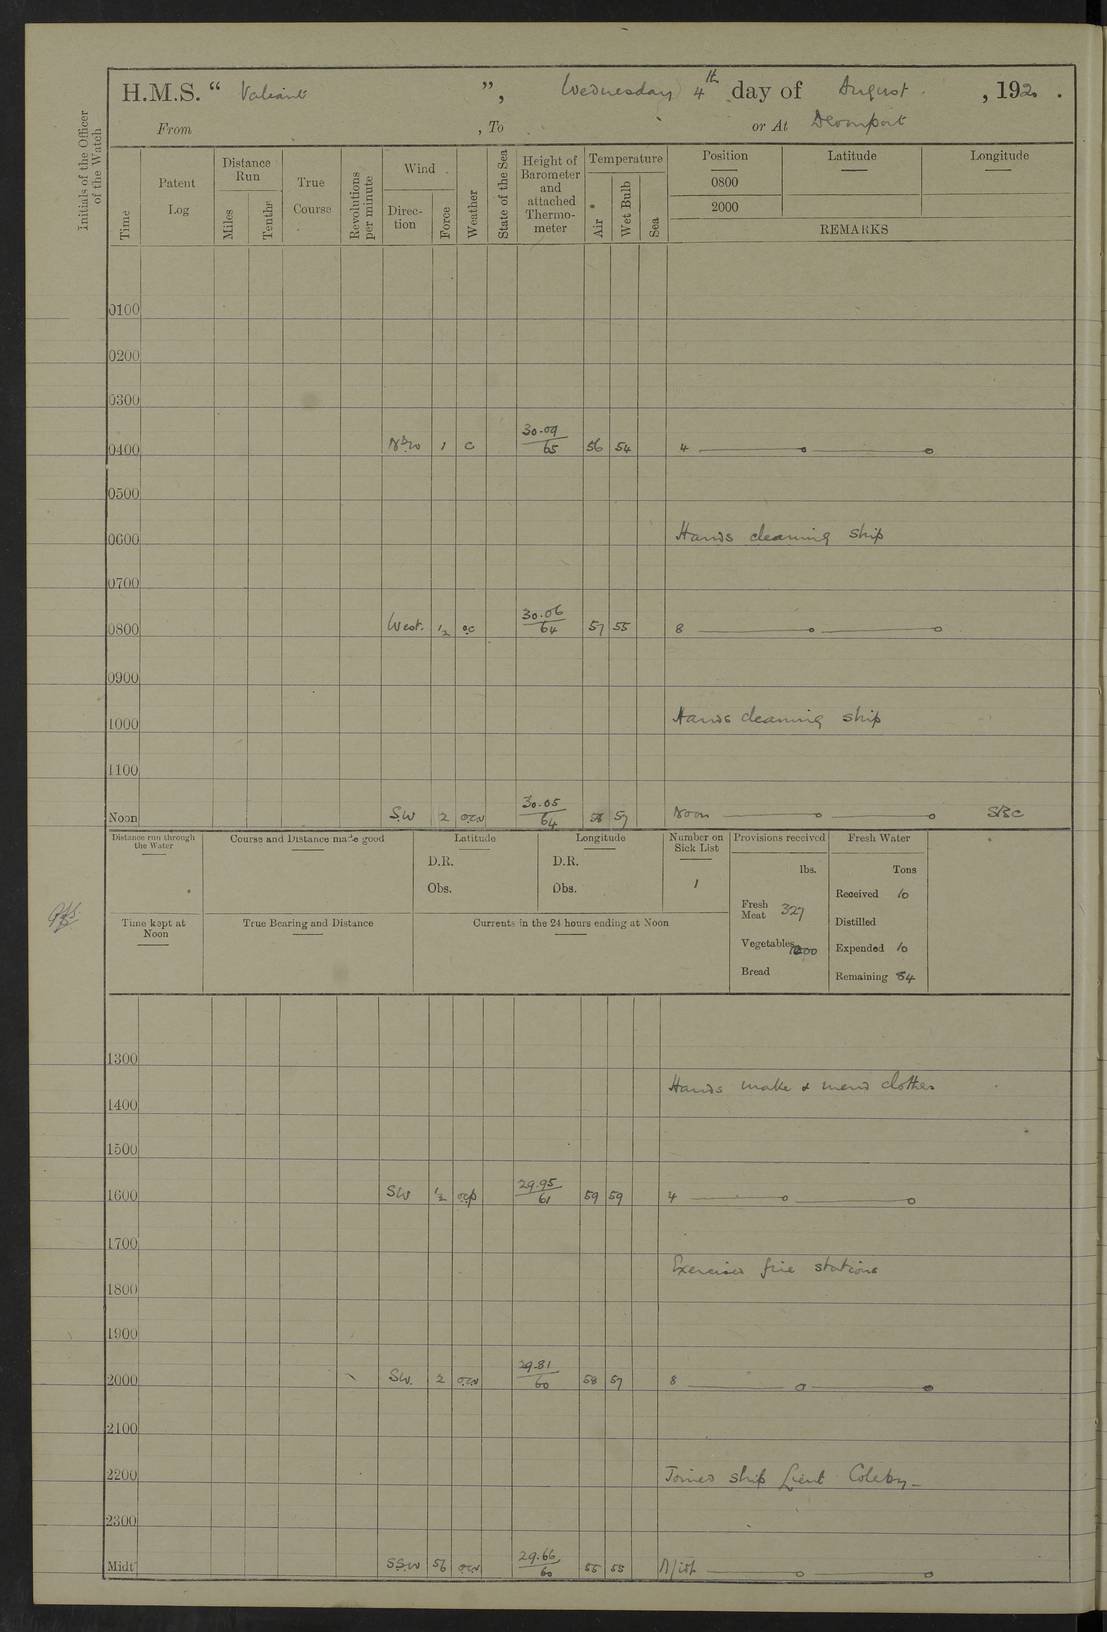 H.M.S. “ Valiant ”, Wednesday 4th day of August , 192 .
From , To or At Devonport
Initials of the Officer of the Watch
Time
Patent Log
Distance Run
Miles
Tenths
True Course
Revolutions per minute
Wind
Direction
Force
Weather
State of the Sea
Height of Barometer and attached Thermometer
Temperature
Air
Wet Bulb
Sea
Position Latitude Longitude
0800
2000
REMARKS
0100
0200
0300
0400 1 c 30.09/65 56 54 4
0500
0600 Hands cleaning ship
0700
0800 West. 1/2 oc 30.06/64 57 55 8
0900
1000 Hands cleaning ship
1100
Noon SW 2 30.05/64 57 Noon
Distance run through the Water
Course and Distance made good
Latitude
D.R.
Obs.
Longitude
D.R.
Obs.
Number on Sick List
1
Provisions received
lbs.
Fresh Meat 327
Vegetables
Bread
Fresh Water
Tons
Received 10
Distilled
Expended 10
Remaining 84
Time kept at Noon
True Bearing and Distance
Currents in the 24 hours ending at Noon
1300
Hands make & mend clothes
1400
1500
1600 SW 1/2 ocp 29.95/61 59 59 4
1700
Exercised fire stations
1800
1900
2000 SW. 2 29.81/60 58 57 8
2100
2200 Joined ship Lieut Coleby
2300
Midt SSW 56 29.66/60 55 55